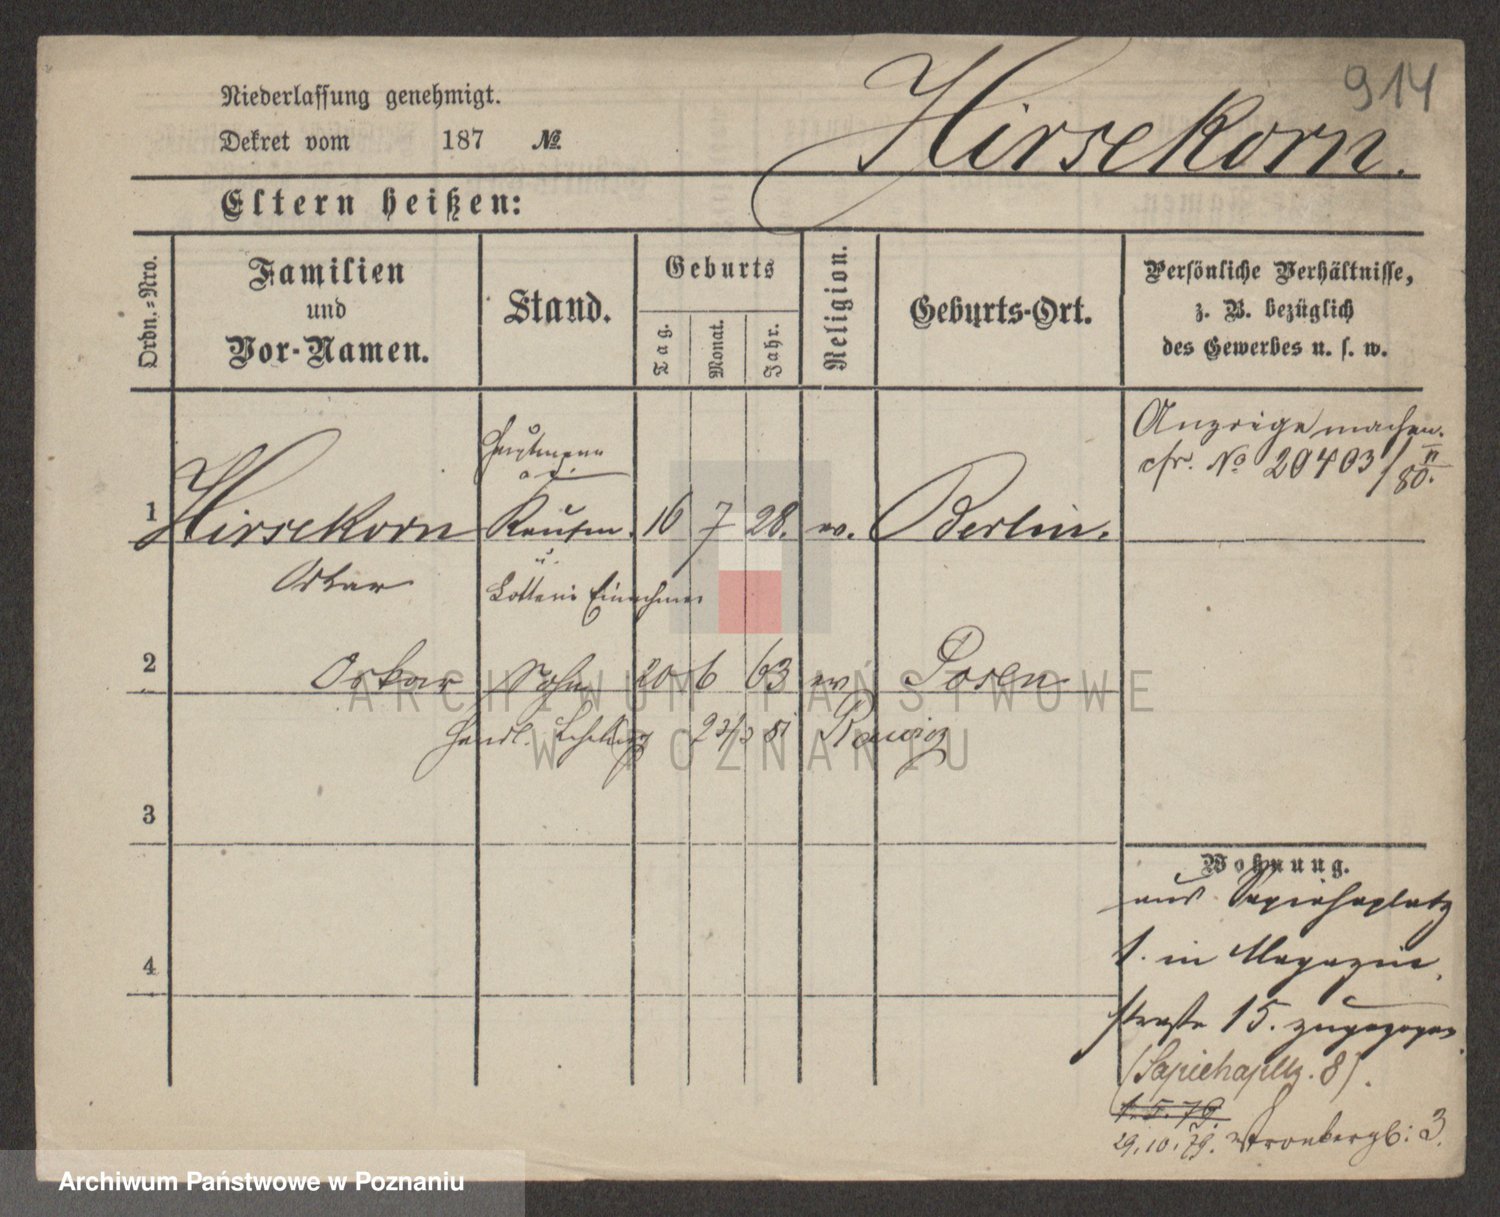 914
Niederlassung genehmigt.
Hirsekorn.
Dekret vom 187 №
Eltern heißen:
Ordn.-Nro.
Familien
und
Vor-Namen.
Stand.
Geburts
Tag.
Monat.
Jahr.
Religion.
Geburts-Ort.
Persönliche Verhältnisse,
z. B. bezüglich
des Gewerbes u. s. w.
Hauptmann
a. D.
Anzeige machen.
cfr. No 20403/II 80.
1 Hirsekorn Kaufm. 16 7 28. ev. Berlin.
u.
Oskar Lotterie Einnehmer
2 Oskar Sohn 20 6 63 ev Posen
Handl. Lehrling 23/3 81 Rawicz
3
4
Wohnung.
aus Sapiehaplatz
1. in Magazin
straße 15. zugezogen
(Sapiehapltz. 8).
1.5.79.
29.10.79. Wronkergb: 3.
ARCHIWUM PAŃSTWOWE
W POZNANIU
Archiwum Państwowe w Poznaniu